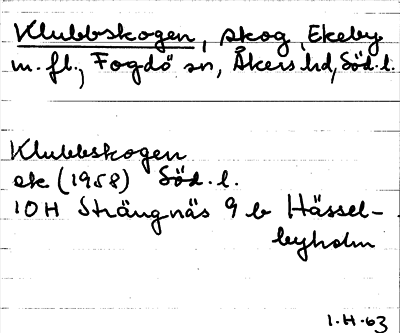 Klubbskogen, skog, Ekeby
m.fl., Fogdö sn, Åkers hd, Söd.l.
Klubbskogen
ek (1958) Söd.l.
10H Strängnäs 9 b Hässel-
byholm
1.H.63